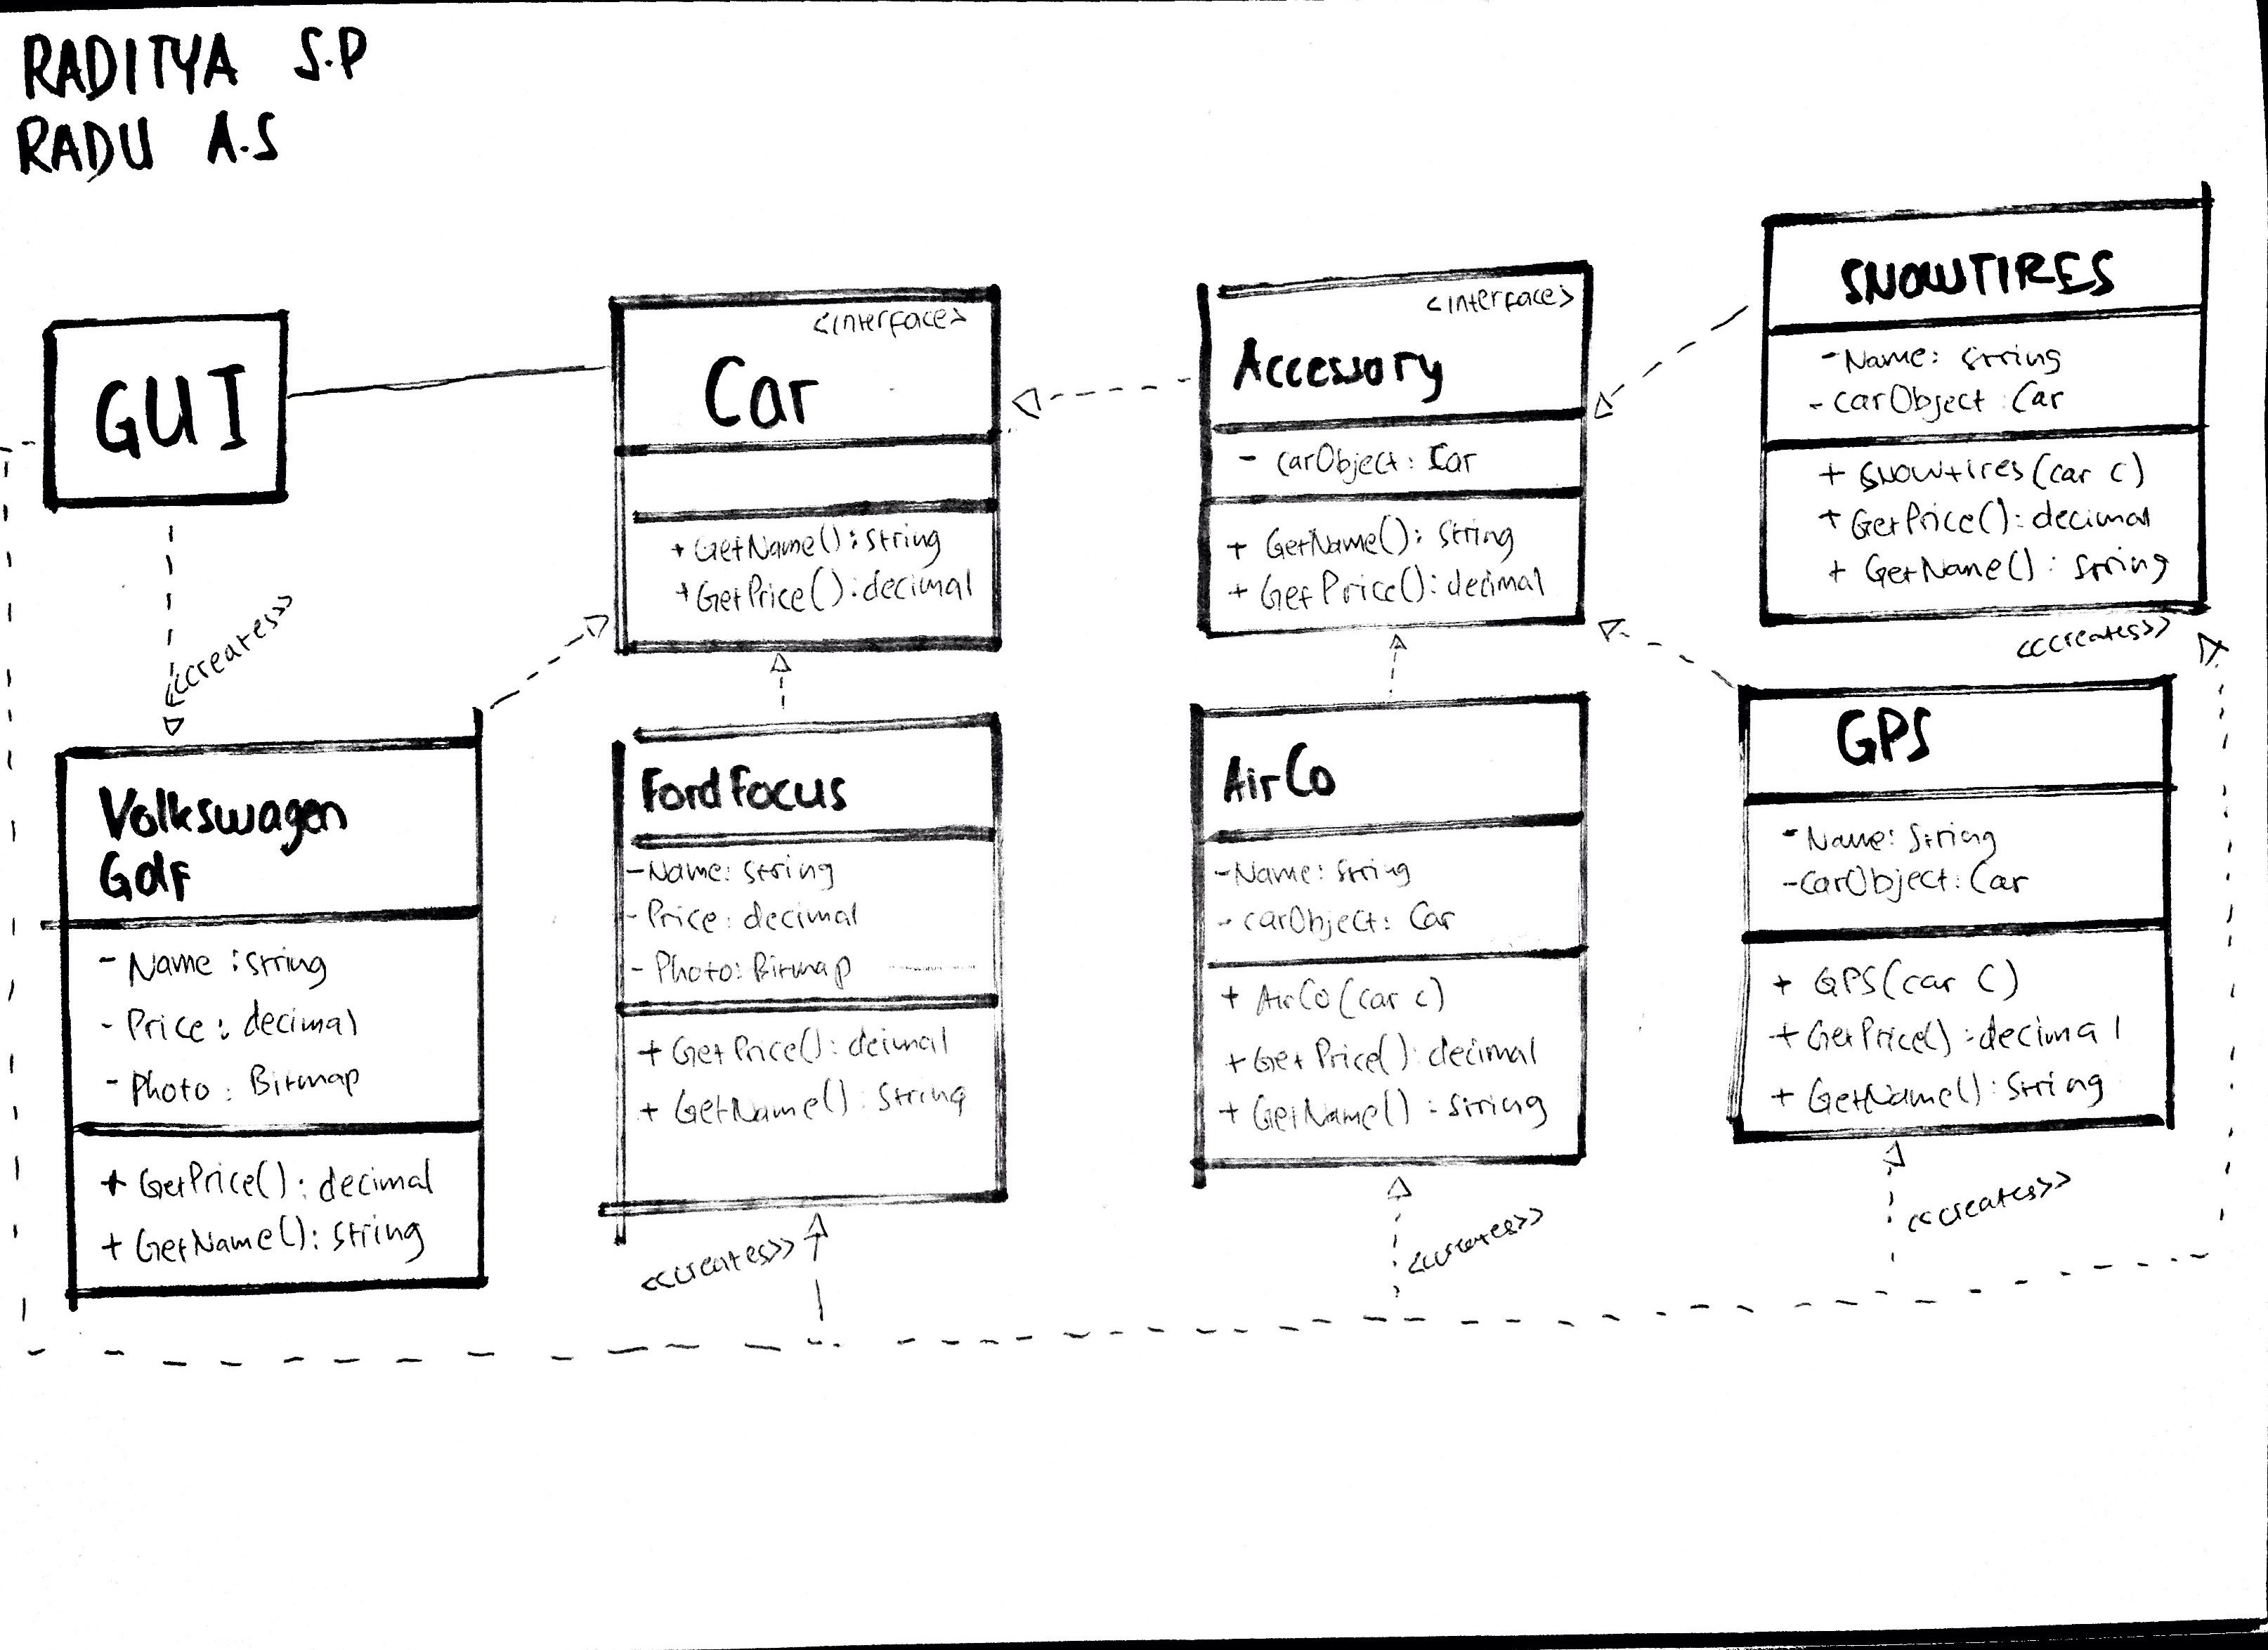 RADITYA S.P
RADU A.S
GUI
<<creates>>
<interface>
Car
+ GetName() : string
+ GetPrice() : decimal
<interface>
Accessory
- carObject : Car
+ GetName() : string
+ GetPrice() : decimal
SNOWTIRES
- Name : string
- carObject : Car
+ snowtires(car c)
+ GetPrice() : decimal
+ GetName() : string
<<creates>>
Volkswagen
Golf
- Name : string
- Price : decimal
- Photo : Bitmap
+ GetPrice() : decimal
+ GetName() : string
Ford Focus
- Name : string
- Price : decimal
- Photo : Bitmap
+ GetPrice() : decimal
+ GetName() : string
<<creates>>
AirCo
- Name : string
- carObject : Car
+ AirCo(car c)
+ GetPrice() : decimal
+ GetName() : string
<<creates>>
GPS
- Name : string
- carObject : Car
+ GPS(car c)
+ GetPrice() : decimal
+ GetName() : string
<<creates>>